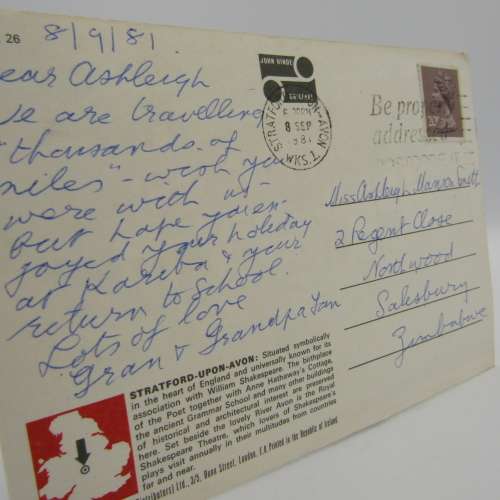 26
8/9/81.
ear Ashleigh
We are travelling
"thousands of
miles" - wish you
were with us -
but hope you en-
joyed your holiday
at Kariba & your
return to School.
Lots of love
Gran & Grandpa Ian
JOHN HINDE
STRATFORD AVON
8 SEP
WKS. 1
Be proper
addressed
Miss Ashleigh
2 Regent Close
Northwood
Salesbury
Zimbabwe
STRATFORD-UPON-AVON: Situated symbolically
in the heart of England and universally known for its
association with William Shakespeare. The birthplace
of the Poet together with Anne Hathaway's Cottage,
the ancient Grammar School and many other buildings
of historical and architectural interest are preserved
here. Set beside the lovely River Avon is the Royal
Shakespeare Theatre, which lovers of Shakespeare's
plays visit annually in their multitudes from countries
far and near.
Distributors) Ltd., 3/5, Dunn Street, London, E.8. Printed in the Republic of Ireland.